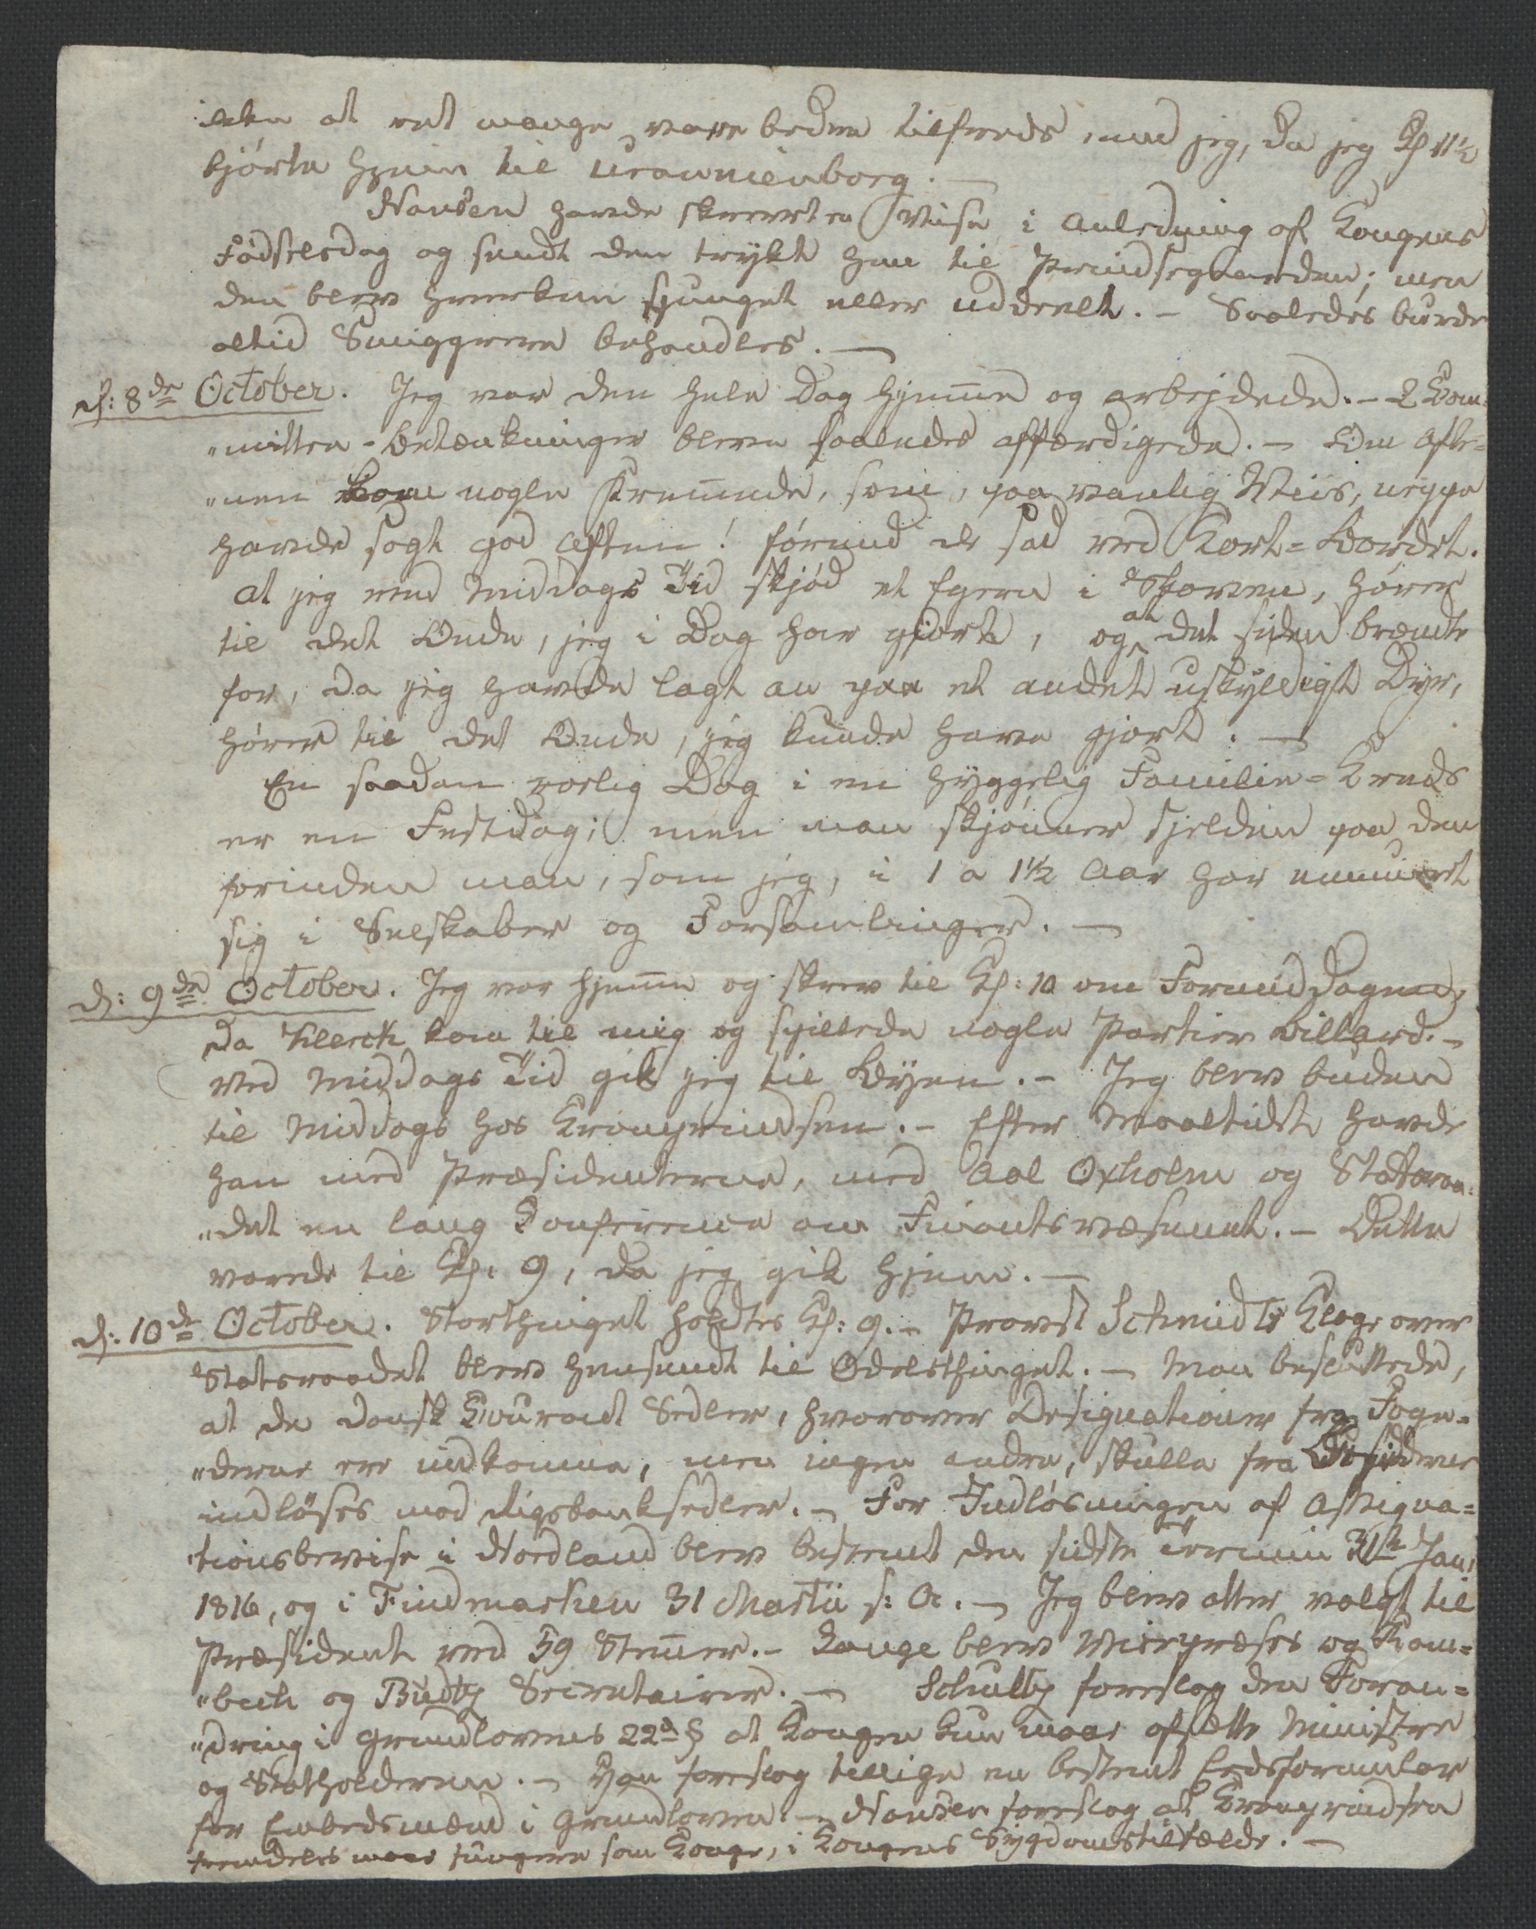 ikke at ret mange vare bedre tilfreds, end jeg, da jeg Kl 11½
kjørte hjem til Uranienborg. —
Hansen havde skrevet en Viise i Anledning af Kongens
Fødselsdag og sendt den trykt hen til Prindsegaarden; men
den blev hverken sjunget eller uddeelt. – Saaledes burde
altid Smiggrere behandles. —
d: 8de October. Jeg var den hele Dag hjemme og arbejdede. – 2 Com-
"mittee-Betænkninger bleve saaledes affærdigede. – Om Afte-
"nen kom nogle Fremmede, som, paa vanlig Viis, neppe
havde sagt god Aften! førend de sad ved Kort-Bordet.
At jeg ved Middags Tid skjød et Egern i Skoven, hører
til det Onde, jeg i Dag har gjort, og at det siden brændte
for, da jeg havde lagt an paa et andet uskyldigt Dyr,
hører til det Onde, jeg kunde have gjort. —
En saadan roelig Dag i en hyggelig Familie-Kreds
er en Festdag; men man skjønner sjelden paa den
forinden man, som jeg, i 1 a 1½ Aar har ennuiert
sig i Selskaber og Forsamlinger. —
d: 9de October. Jeg var hjemme og skrev til Kl: 10 om Formiddagen,
da Klerck kom til mig og spillede nogle Partier Billard. –
Ved Middags Tid gik jeg til Byen. – Jeg blev buden
til Middags hos Kronprindsen. – Efter Maaltidet havde
han med Præsidenterne, med Aal Oxholm og Statsraa-
"det en lang Conference om Finantsvæsenet. – Dette
varede til Kl. 9, da jeg gik hjem. —
d: 10de October. Storthinget holdtes Kl: 9. – Provst Schmidts Klage over
Statsraadet blev hensendt til Odelsthinget. – Man besluttede,
at de dansk Courant Sedler, hvorover Designationer fra Foge-
"derne ere indkomne, men ingen andre, skulle fra Besidderne
indløses med Rigsbanksedler. – For Indløsningen af Assigna-
"tionsbevise i Nordland blev bestemt den sidste Termin 31te Jan:
1816, og i Findmarken 31 Martii s: A. – Jeg blev atter valgt til
Præsident med 59 Stemmer. – Lange blev Vicepræses og Rom-
"bech og Budtz Secretairer. – Schultz foreslog den Foran-
"dring i Grundlovens 22d § at Kongen kun maae afsætte Ministre
og Statholderen. – Han foreslog tillige en bestemt Eedsformular
for Embedsmænd i Grundloven. – Hansen foreslog at Kronprindsen
fremdeles maae fungere som Konge, i Kongens Sygdomstilfælde. —